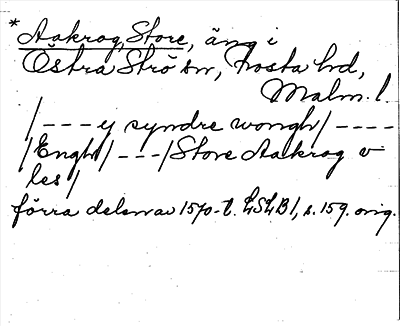 * Aakrog, Store, äng i
Östra Strö sn, Frosta hd,
Malm. l.
/ --- y syndre wongh / ----
/ Engh / --- / Store Aakrog v
les /
förra delen av 1570-t. LSLB 1, s. 159. orig.